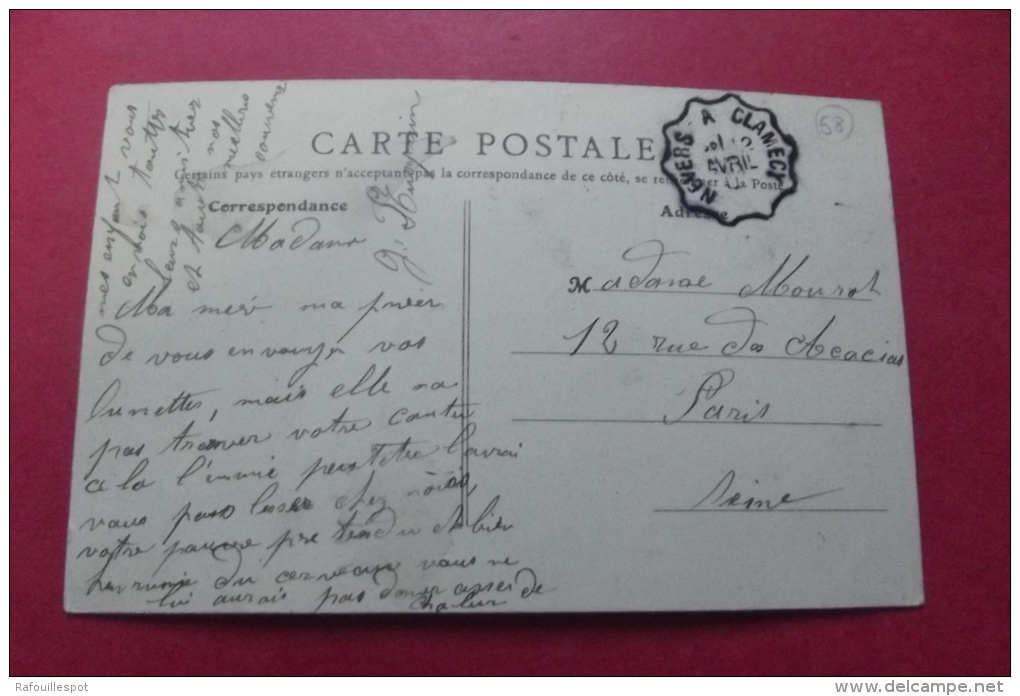 CARTE POSTALE
Certains pays étrangers n'acceptant pas la correspondance de ce côté, se renseigner à la Poste
Correspondance
Adresse
NEVERS A CLAMECY
AVRIL
58
Madame
Ma meré ma prier
de vous envoyer vos
lunettes, mais elle na
pas trouver votre
a la peut etre l'avrai
vous pas lesser chez
votre pauvre père tendu bien
du cerveau vous ne
lui aurais pas doner asses de
chaleur
mes enfants vous
envois toutes
leurs amitiez
et nos
meillers
Madame Mourot
12 rue des Acacias
Paris
Seine
Rafouillespot
www.delcampe.net